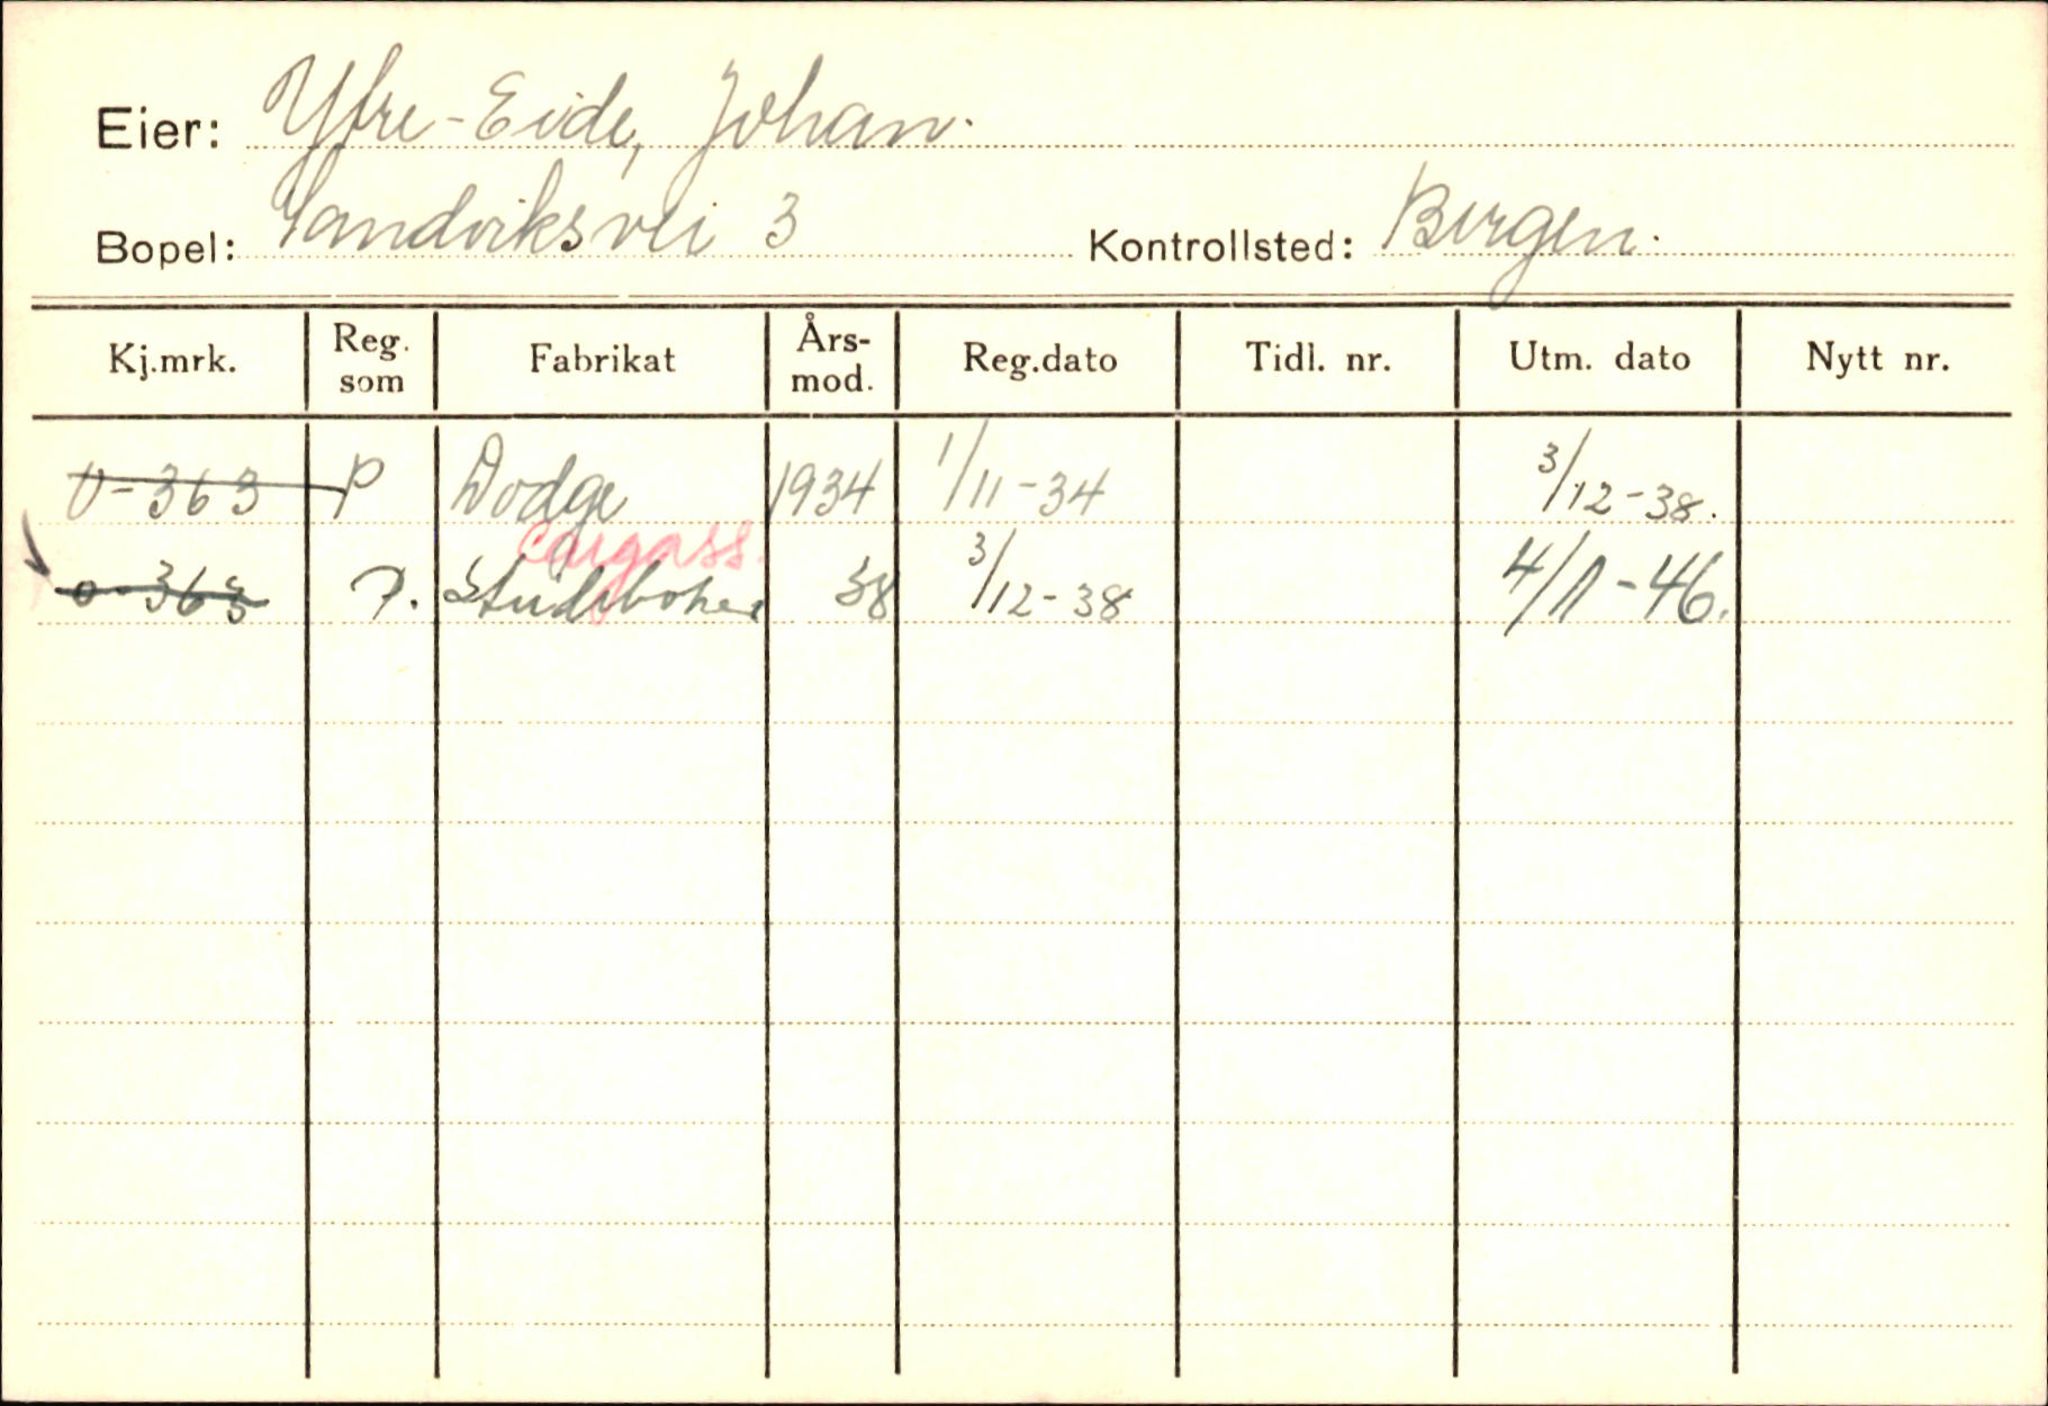 Eier: Ytre-Eide, Johan.
Bopel: Sandviksvei 3 Kontrollsted: Bergen.
Kj.mrk. Reg. som Fabrikat Års-mod. Reg.dato Tidl. nr. Utm. dato Nytt nr.
O-363 P Dodge 1934 1/11-34 3/12-38.
O-363 P. 38 3/12-38 4/11-46.